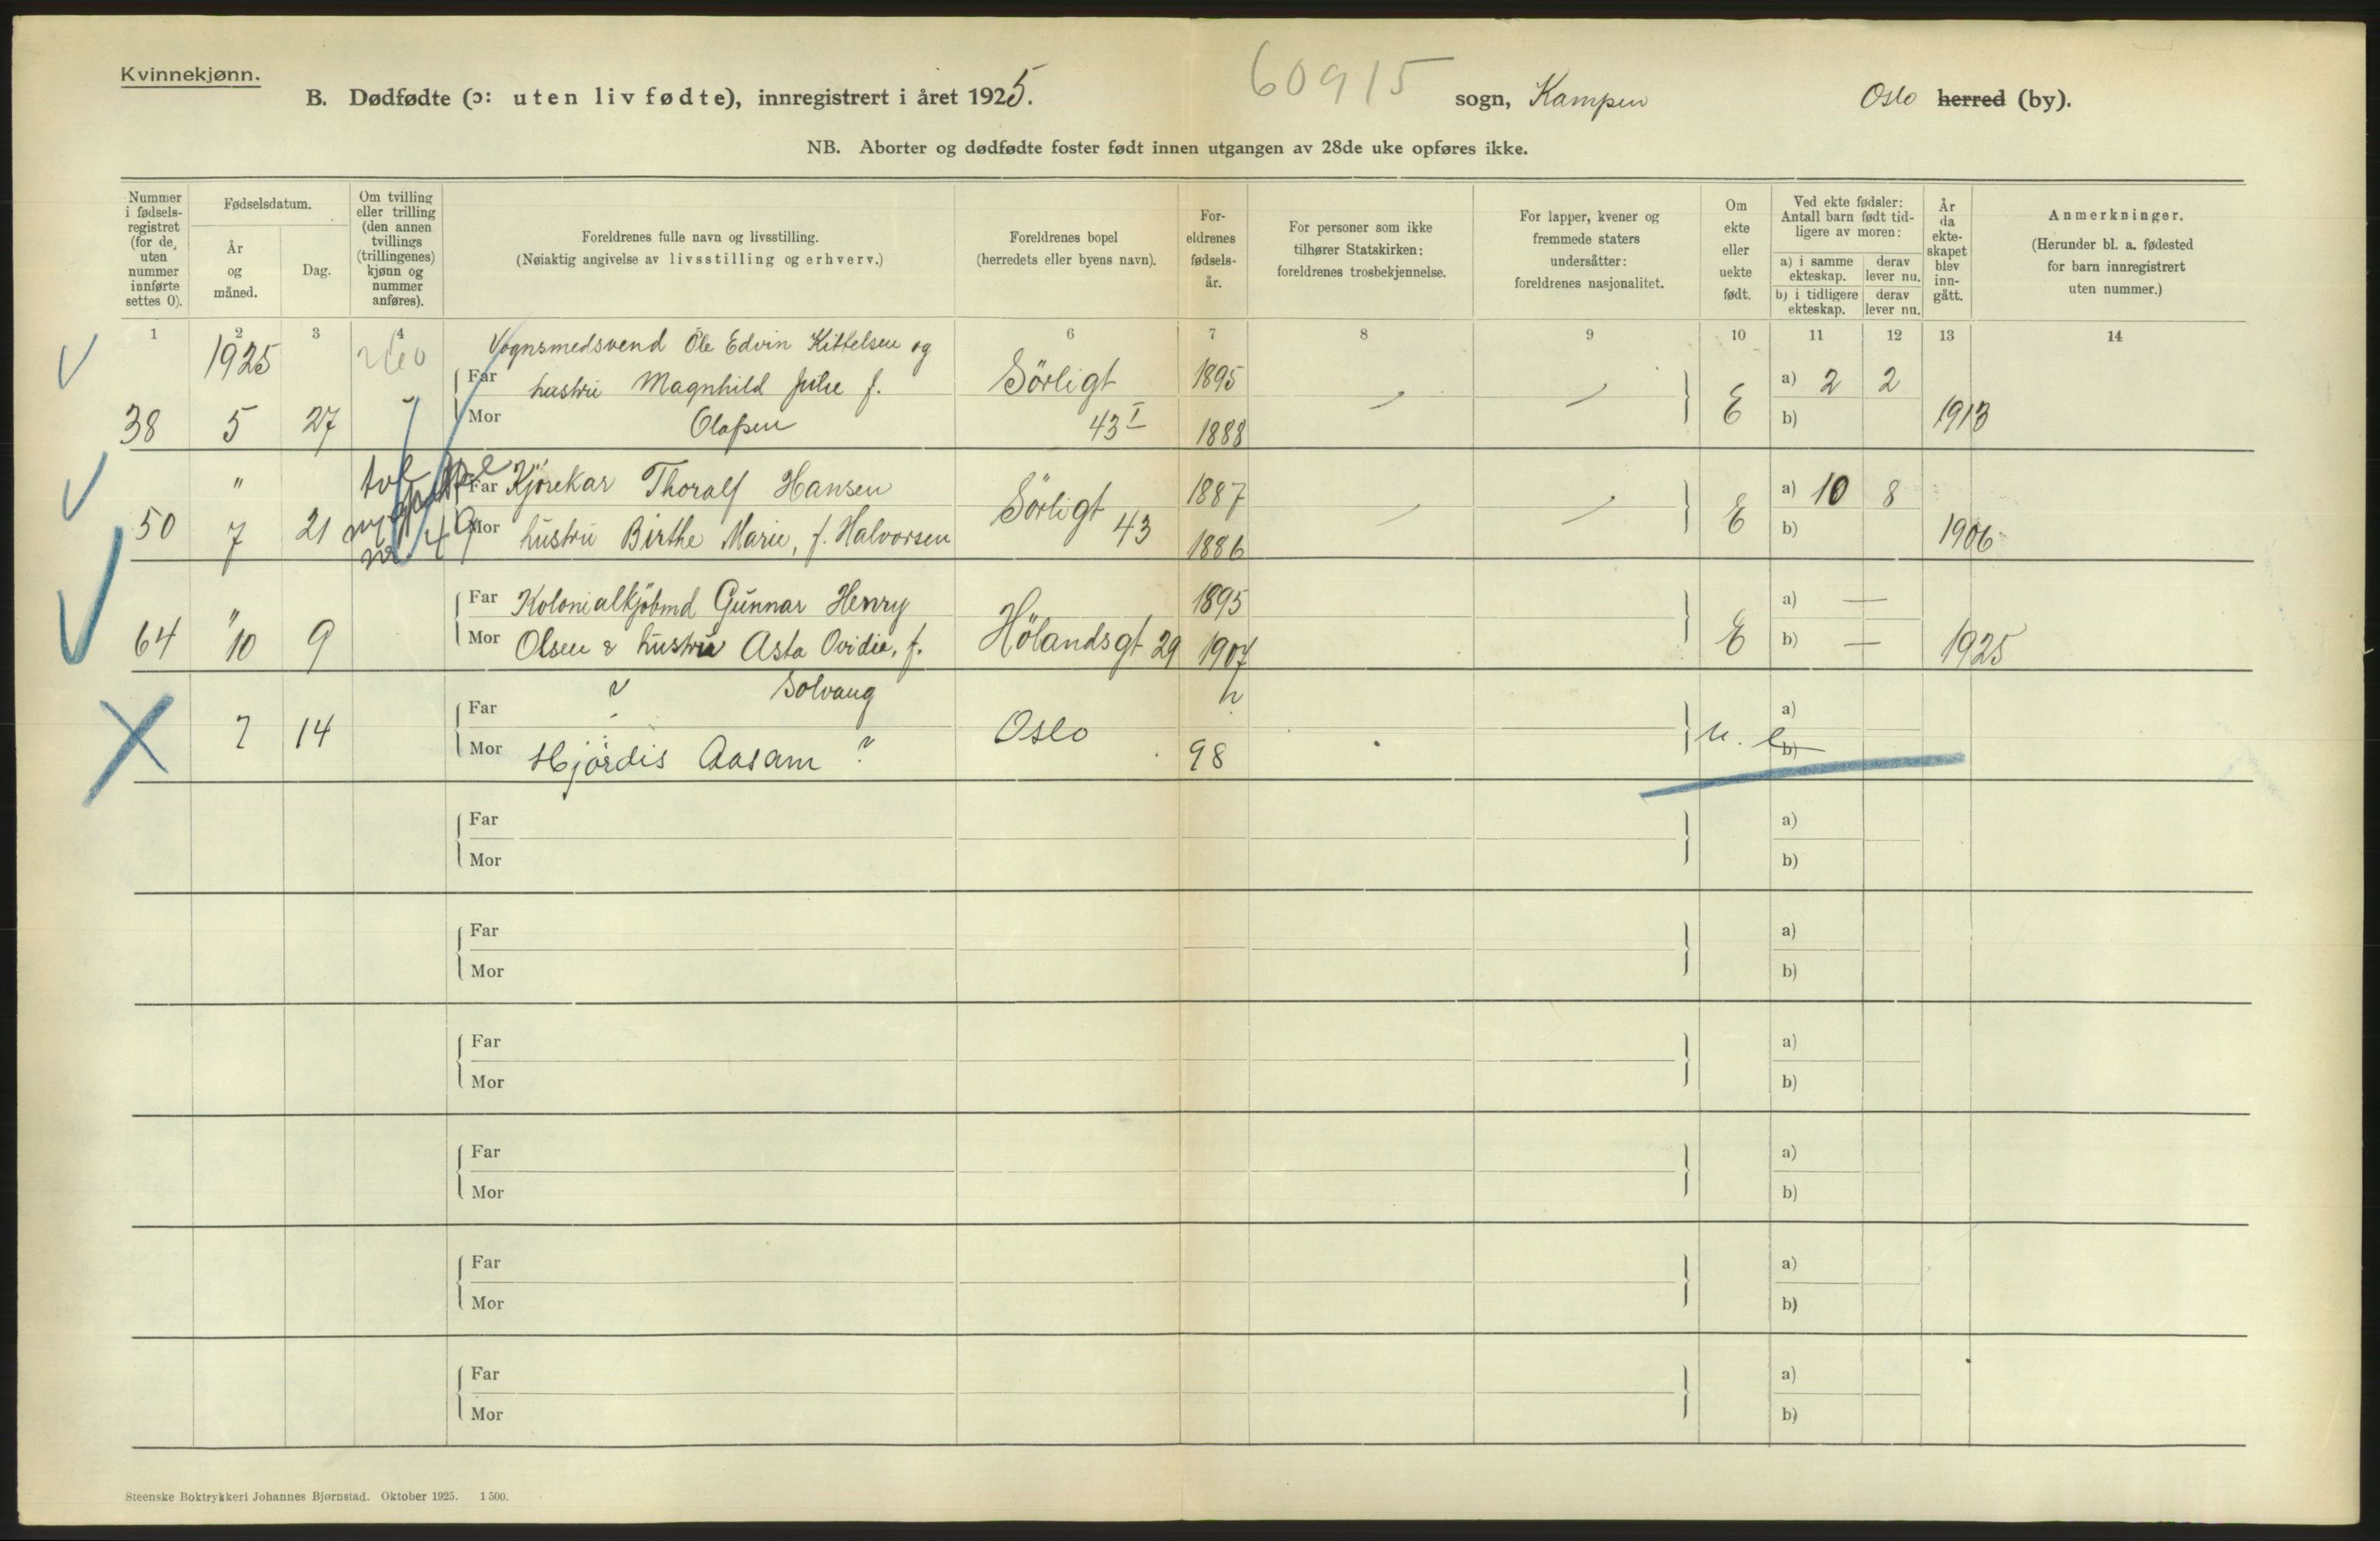 Kvinnekjønn.
B. Dødfødte (ɔ: uten liv fødte), innregistrert i året 1925.
60915
sogn, Kampen
Oslo herred (by).
NB. Aborter og dødfødte foster født innen utgangen av 28de uke opføres ikke.
Nummer i fødsels-registret (for de uten nummer innførte settes 0).
Fødselsdatum.
År og måned.
Dag.
Om tvilling eller trilling (den annen tvillings (trillingenes) kjønn og nummer anføres).
Foreldrenes fulle navn og livsstilling.
(Nøiaktig angivelse av livsstilling og erhverv.)
Foreldrenes bopel
(herredets eller byens navn).
For-eldrenes fødsels-år.
For personer som ikke tilhører Statskirken: foreldrenes trosbekjennelse.
For lapper, kvener og fremmede staters undersåtter: foreldrenes nasjonalitet.
Om ekte eller uekte født.
Ved ekte fødsler: Antall barn født tid-ligere av moren:
a) i samme ekteskap.
derav lever nu.
b) i tidligere ekteskap.
derav lever nu.
År da ekte-skapet blev inn-gått.
Anmerkninger.
(Herunder bl. a. fødested for barn innregistrert uten nummer.)
1 2 3 4 6 7 8 9 10 11 12 13 14
1925
Vognsmedsvend Ole Edvin Kittelsen og
Far hustru Magnhild Julie f. Sörligt 1895 a) 2 2
38 5 27 Mor Olafsen 43 I 1888 E b) 1913
" Far Kjørekar Thoralf Hansen Sörligt 1887 a) 10 8
50 7 21 Mor hustru Birthe Marie, f. Halvorsen 43 1886 E b) 1906
Far Kolonialkjöbmd Gunnar Henry 1895 a) —
64 " 10 9 Mor Olsen & hustru Asta Ovidie, f. Hölandsgt 29 1907 E b) — 1925
Solvang
Far ? a)
7 14 Oslo u. e
Mor Hjördis Aasam ? 98 b)
Far a)
Mor b)
Far a)
Mor b)
Far a)
Mor b)
Far a)
Mor b)
Far a)
Mor b)
Far a)
Mor b)
Steenske Boktrykkeri Johannes Bjørnstad. Oktober 1925. 1500.